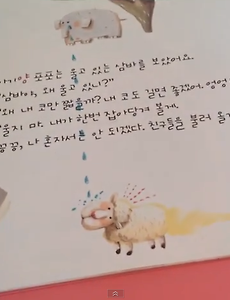 아기양 포포는 울고 있는 삼바를 보았어요.
"삼바야, 왜 울고 있니?"
"왜 내 코만 짧을까? 내 코도 길면 좋겠어. 엉엉
"울지 마. 내가 한번 잡아당겨 볼게.
끙끙, 나 혼자서는 안 되겠다. 친구들을 불러 올게